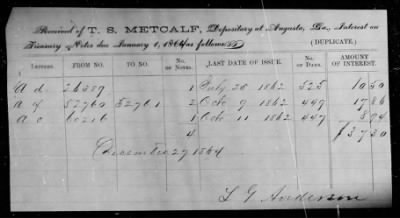 Received of T. S. METCALF, Depositary at Augusta, Ga., Interest on
Treasury Notes due January 1, 1864, as follows:
(DUPLICATE.)
LETTER. FROM NO. TO NO. No. of Notes. LAST DATE OF ISSUE. No. of Days. AMOUNT OF INTEREST.
A d 26389 1 July 20 1862 525 10 50
A f 52760 52761 2 Octo 9 1862 447 17 86
A c 1 Octo 11 1862 447 8 94
4 $ 37 30
December 29 1864
L G Anderson